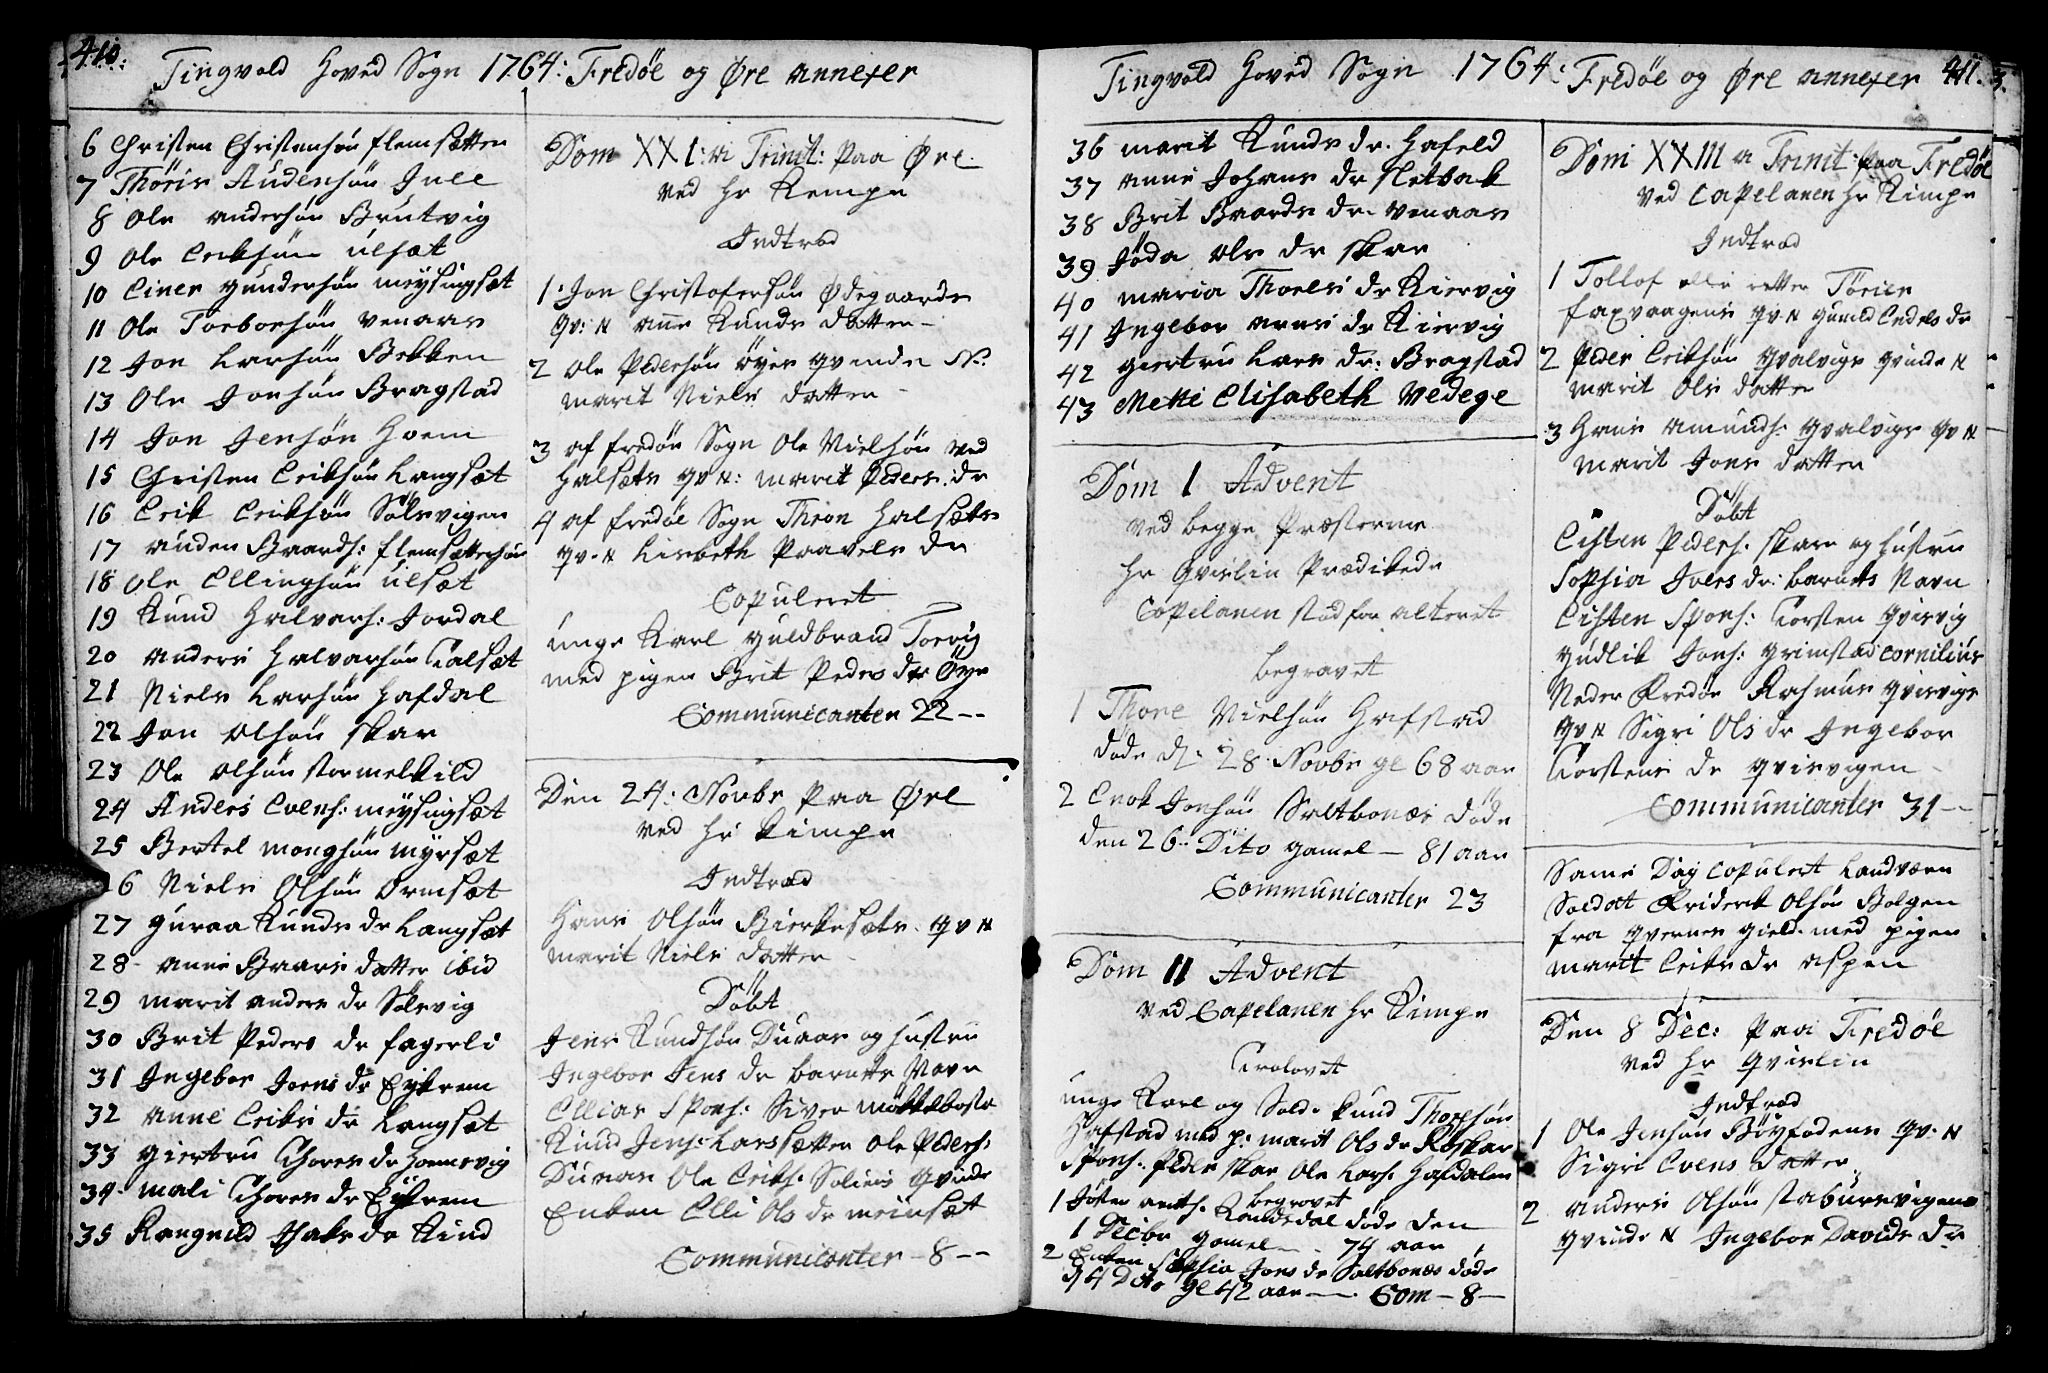 410.
Tingvold Hoved Sogn 1764: Fredøe og Øre annexer
6 Christen Christensøn flemsætter
7 Thöris Audensøn
8 Ole andersøn Brutvig
9 Ole Eriksøn ulsæt
10 Einer gundersøn meysingsæt
11 Ole Torborsøn venaas
12 Jon Larsøn Bekken
13 Ole Jonsøn Bragstad
14 Jon Jensøn Hoem
15 Christen Eriksøn Langsæt
16 Erik Eriksøn Sølsvigen
17 auden Baards: flemsætter
18 Ole Ellingsøn ulsæt
19 Knud Halvars: Jordal
20 anders Halvarsøn
21 Niels Larsøn Hafdal
22 Jon olsøn skar
23 Ole olsøn stormelkild
24 Anders Evens: meysingsæt
25 Bertel mongsøn myrsæt
26 Niels Olsøn Ormsæt
27 guraa Knuds dr Langsæt
28 anne Baars datter ibid
29 marit anders dr Sølsvig
30 Brit Peders dr fagerli
31 Ingebor Joens dr Eykrem
32 anne Eriks dr Langsæt
33 giertru Thores dr Hoemsvig
34 mali Thores dr Eykrem
35 Rangnild dr
Dom XXI: a Trinit: paa Øre
ved Hr Kempe
Indtræd
1 Jon Christofersøn Ødegaards
qv: N anne Knuds datter
2 Ole Pedersøn øyes qvinde N:
marit Niels datter
3 af fredøe Sogn Ole Nielsøn ved
Halsæts qv N: marit Peders dr
4 af fredøe Sogn Thron Halsæts
qv. N Lisbeth Paavels dr
Copuleret
unge Karl guldbrand Torvig
med pigen Brit Peders dr Øye
Communicanter 22 --
Den 24: Novbr paa Øre
ved Hr Kimpe
Indtræd
Hans Olsøn Bierkesæts qv N
marit Niels datter
Døbt
Jens Knudsøn Duraas og Hustru
Ingebor Jens dr barnets Navn
Ellias Spons: Siver
Knud Jens: Larssætter Ole Peders:
Duraas Ole Eriks: qvinde
Enken Elli Ols dr meinsæt
Communicanter - 8 --
Tingvold Hoved Sogn 1764: Fredøe og Øre annexer 411.
36 marit Knuds dr. Hafeld
37 anne Johans dr sletbak
38 Brit Baards dr. venaas
39 Jøda ols dr skar
40 maria Thoels dr Kiervig
41 Ingebor arns dr Kiervig
42 giertru Lars dr: Bragstad
43 Mette Elisabeth Wedege
Dom I Advent
ved begge Præsterne
Hr Qvislin Prædikede
Capelanen stod for alteret
begravet
1 Thore Nielsøn Hafstad
døde d: 28 Novbr gl 68 aar
2 Enok Jonsøn Saltbonæs døde
den 26. Dito gamel - 81 aar
Communicanter 23
Dom II Advent
ved Capelanen Hr Kimpe
Trolovet
unge Karl og Sold. Knud
Hafstad med p: marit Ols dr Røskar
Spons. Peder skar Ole Lars. Hafdalen
begravet
1 døde den
1 Decbr gamel - 74 aar
2 Enken Sophia Jons dr Saltbonæs døde
d 4 Dito gl 42 aar - Com - 8 -
Dom XXIII a Trinit: paa Fredøe
ved Capelanen Hr Kimpe
Indtræd
1 Tollof
faxvaagens qv. N gunild Endels dr
2 Peder Eriksøn qvalvigs qvinde N
marit Ols datter
3 Hans amunds: qvalvigs qv N
marit Jons datter
Døbt
Eisten Peders. skar og Hustru
Sophia Ivers dr: barnets Navn
Eisten Spons: Torsten qvisvig
gudlik Jons: grimstad Cornilius
Neder Fredøe Rasmus qvisvigs
qv N Sigri Ols dr Ingebor
Torstens dr qvisvigen
Communicanter 31 --
Same Day Copulert Landværn
Soldat Friderik Olsøn Bolgen
fra qvernes gield. med pigen
marit Eriks dr aspen
Den 8 Dec: paa Fredøe
ved Hr Qvislin
Indtræd
1 Ole Jensøn qv. N
Sigri Evens datter
2 anders Olsøn staburevigens
qvinde N Ingebor Davids dr